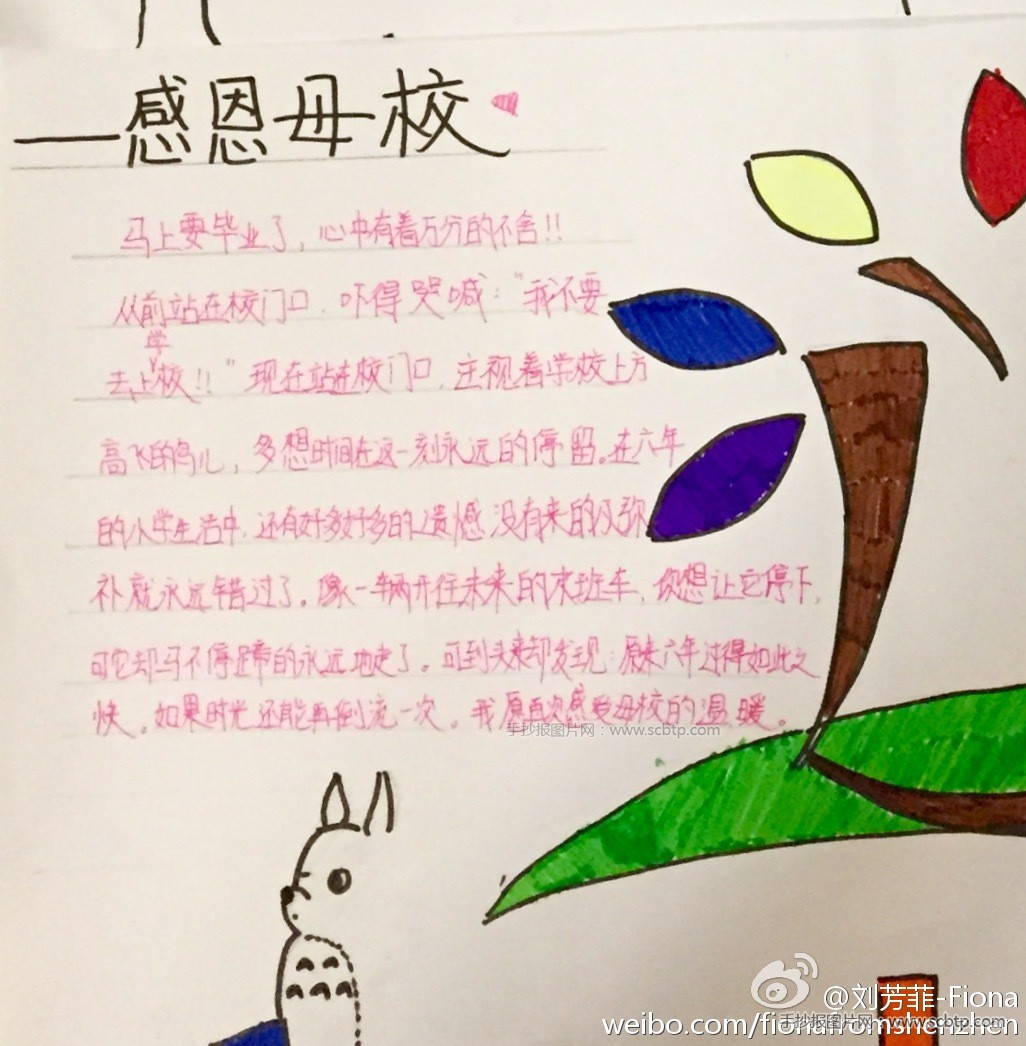 ——感恩母校
马上要毕业了，心中有着万分的不舍!!
从前站在校门口，吓得哭喊："我不要
去上学校!!"现在站在校门口，注视着学校上方
高飞的鸟儿，多想时间在这一刻永远的停留。在六年
的小学生活中，还有好多好多的遗憾没有来的及弥
补就永远错过了。像一辆开往未来的末班车，你想让它停下，
可它却马不停蹄的永远地走了。可到头来却发现：原来六年过得如此之
快。如果时光还能再倒流一次。我愿再次感受母校的温暖。
手抄报图片网：www.scbtp.com
@刘芳菲-Fiona
手抄报图片网：www.scbtp.com
weibo.com/fionafromshenzhen